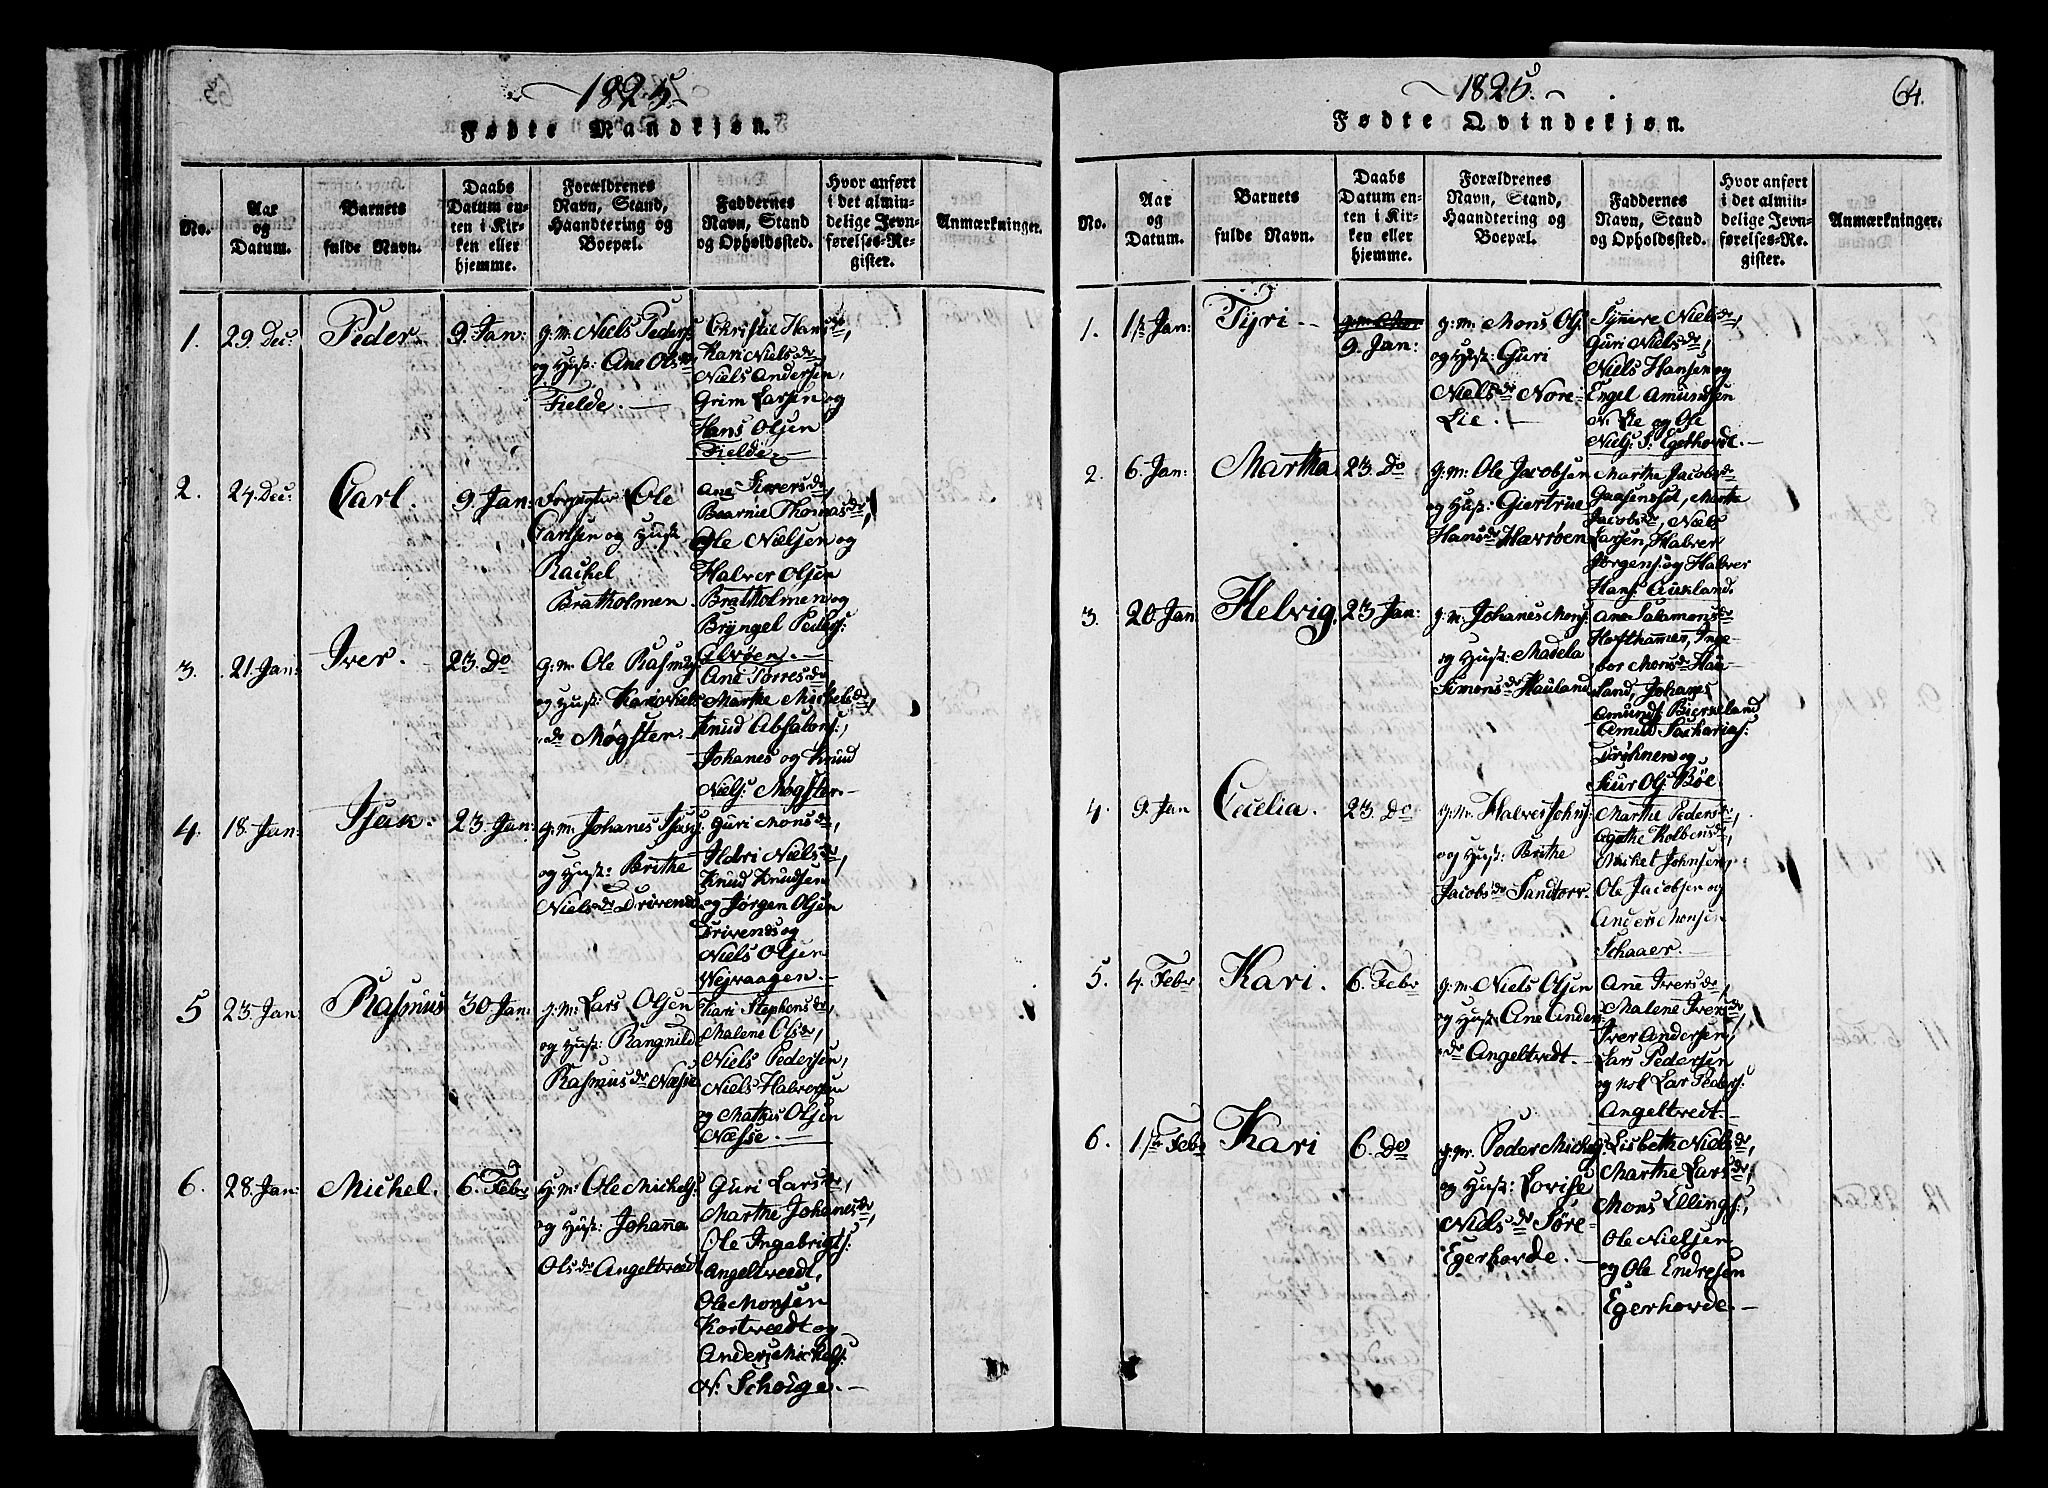 1825.
Fødte Mandkjøn.
No.
Aar
og
Datum.
Barnets
fulde Navn.
Daabs
Datum en-
ten i Kir-
ken eller
hjemme.
Forældrenes
Navn, Stand,
Haandtering og
Boepæl.
Faddernes
Navn, Stand
og Opholdssted.
Hvor anført
i det almin-
delige Jevn-
førelses-Re-
gister.
Anmærkninger.
1.
29. Dec:
Peder.
9. Jan:
g: m: Niels Peders:
og Hust: Ane Olsdr
Fielde.
Christie Hansdr,
Kari Nielsdr
Niels Andersen,
Grim Larsen og
Hans Olsen
Fielde.
2.
24. Dec:
Carl.
9. Jan:
Ole
Carlsen og Hust
Rachel
Bratholmen.
Ane Siversdr,
Thomasdr,
Ole Nielsen og
Halver Olsen
Bratholmen og
Bryngel Peders:
Alvøen.
3.
21. Jan:
Iver.
23. Do
g: m: Ole Rasmus:
og Hust: Kari Niels
dr Møgster.
Ane Torresdr
Marthe Michelsdr,
Knud Absalons:,
Johanes og Knud
Niels: Møgster.
4.
18. Jan:
Isak.
23. Jan:
g: m: Johanes Isaks:
og Hust: Brithe
Nielsdr Drivenes
Guri Monsdr,
Ildri Nielsdr,
Knud Knudsen
og Jørgen Olsen
Drivends og
Niels Olsen
Vejvaagen.
5
23. Jan:
Rasmus
30. Jan:
g: m: Lars Olsen
og Hust: Rangnilde
Rasmusdr Næsse
Kari Stephensdr,
Malene Olsdr,
Niels Pedersen,
Niels Halvorsen
og Mathis Olsen
Næsse.
6.
28. Jan:
Michel.
6. Febr
Ole Michels:
og Hust: Johanna
Olsdr Angeltvedt
Guri Larsdr,
Marthe Johanesdr,
Ole Ingebrigts:
Angeltvedt,
Ole Monsen
Kortvedt og
Anders Michels:
N. Schoge.
1825.
64.
Fødte Qvindekjøn.
No.
Aar
og
Datum.
Barnets
fulde Navn.
Daabs
Datum en-
ten i Kir-
ken eller
hjemme.
Forældrenes
Navn, Stand,
Haandtering og
Boepæl.
Faddernes
Navn, Stand
og Opholdssted.
Hvor anført
i det almin-
delige Jevn-
førelses-Re-
gister.
Anmærkninger.
1.
1ste Jan:
Tyri.
9. Jan:
g: m: Mons Ols:
og Hust: Guri
Nielsdr Nore-
Lie.
Synere Nielsdr,
Guri Nielsdr,
Niels Hansen og
Engel Amundsen
N. Lie og Ole
Niels: S. Egerhovde.
2.
6. Jan:
Martha
23. Do
g: m: Ole Jacobsen
og Hust: Giertrue
Hansdr Hærøen
Marthe Jacobsdr
Marthe
Jacobsdr, Niels
Larsen, Halver
Jørgens: og Halver
Hans: Aukland.
3.
20. Jan
Helvig.
23. Jan:
g: m: Johanes Mons:
og Hust: Madela
Simonsdr Hauland
Ane Salamonsdr
Hofthammer, Inge-
bor Monsdr Hau-
land, Johanes
Amunds: Bierkeland
Amund Sacharias:
og
Siur Ols: Bøe.
4.
9. Jan
Cecelia.
23. Do
g: m: Halver Johns:
og Hust: Brithe
Jacobsdr Sandtorv.
Marthe Pedersdr,
Agathe Kolbensdr,
Mikel Johnsen,
Ole Jacobsen og
Anders Monsen
Schaaer.
5.
4. Febr
Kari.
6. Febr
g: m: Niels Olsen
og Hust: Ane Anders
dr Angeltvedt.
Ane Iversdr,
Malene Iversdr
Iver Andersen,
Lars Pedersen
og nok Lar Peders:
Angeltvedt.
6.
1ste Febr
Kari
6. Do
g: m: Peder Mickels:
og Hust: Lovise
Nielsdr Søre-
Egerhovde.
Lisbeth Nielsdr
Marthe Larsdr,
Mons Ellings:,
Ole Nielsen
og Ole Endresen
Egerhovde.